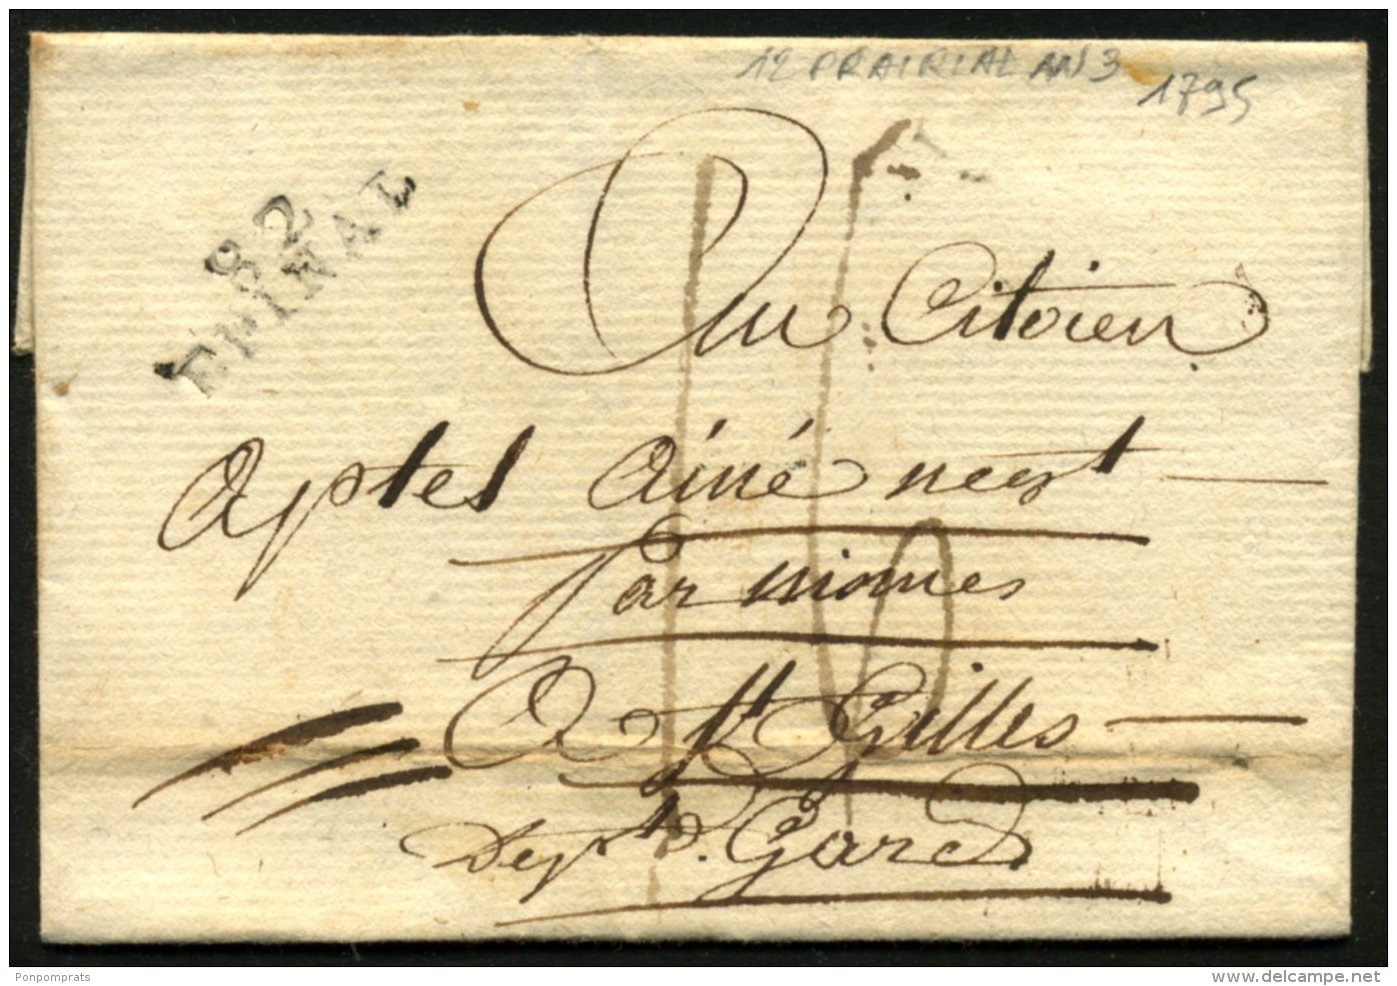 12 PRAIRIAL AN 3
1795
82
EPINAL
Au Citoien
aptel ainé
Par nismes
A St Gilles
Dept. d. Gard
Ponpomprats
www.delcampe.net